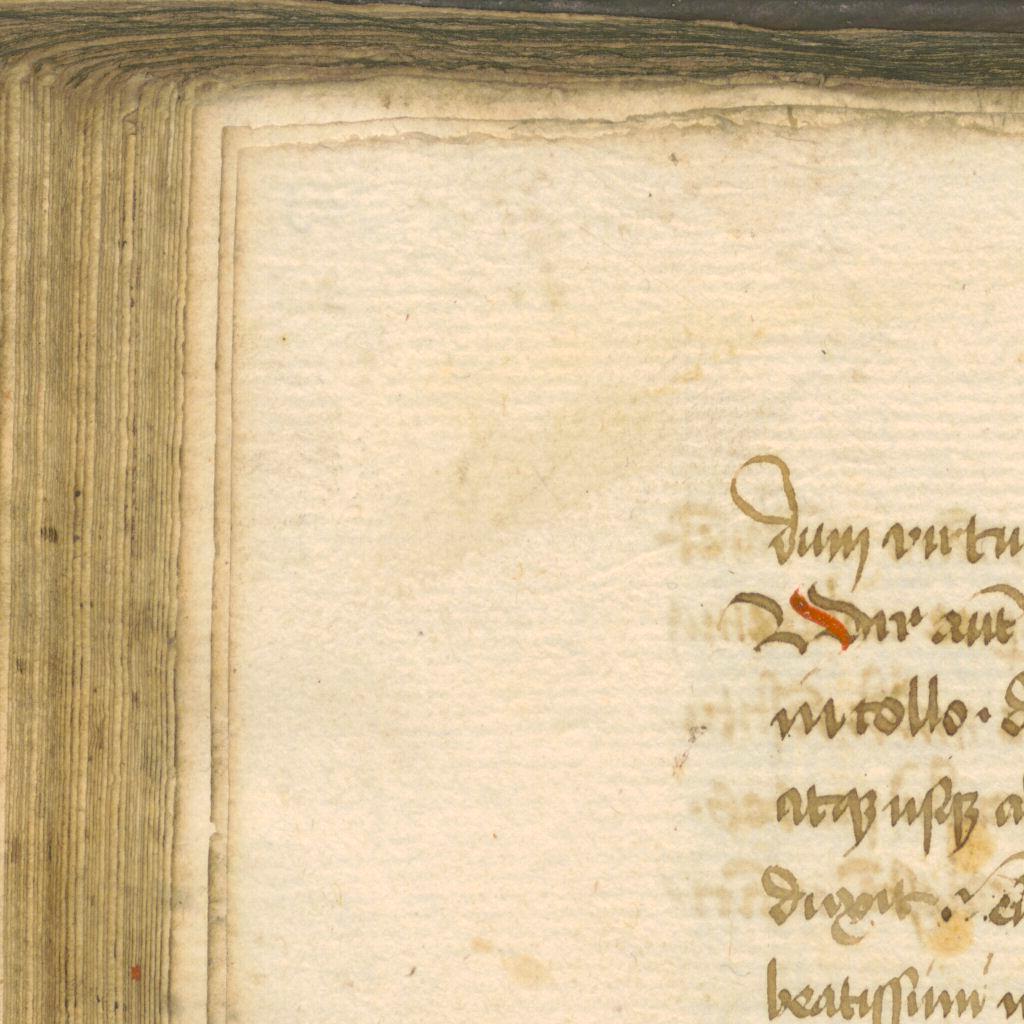 dum virtu
Vir aut̄
in collo · d
atqꝫ usqꝫ a
duxit
beatissimi